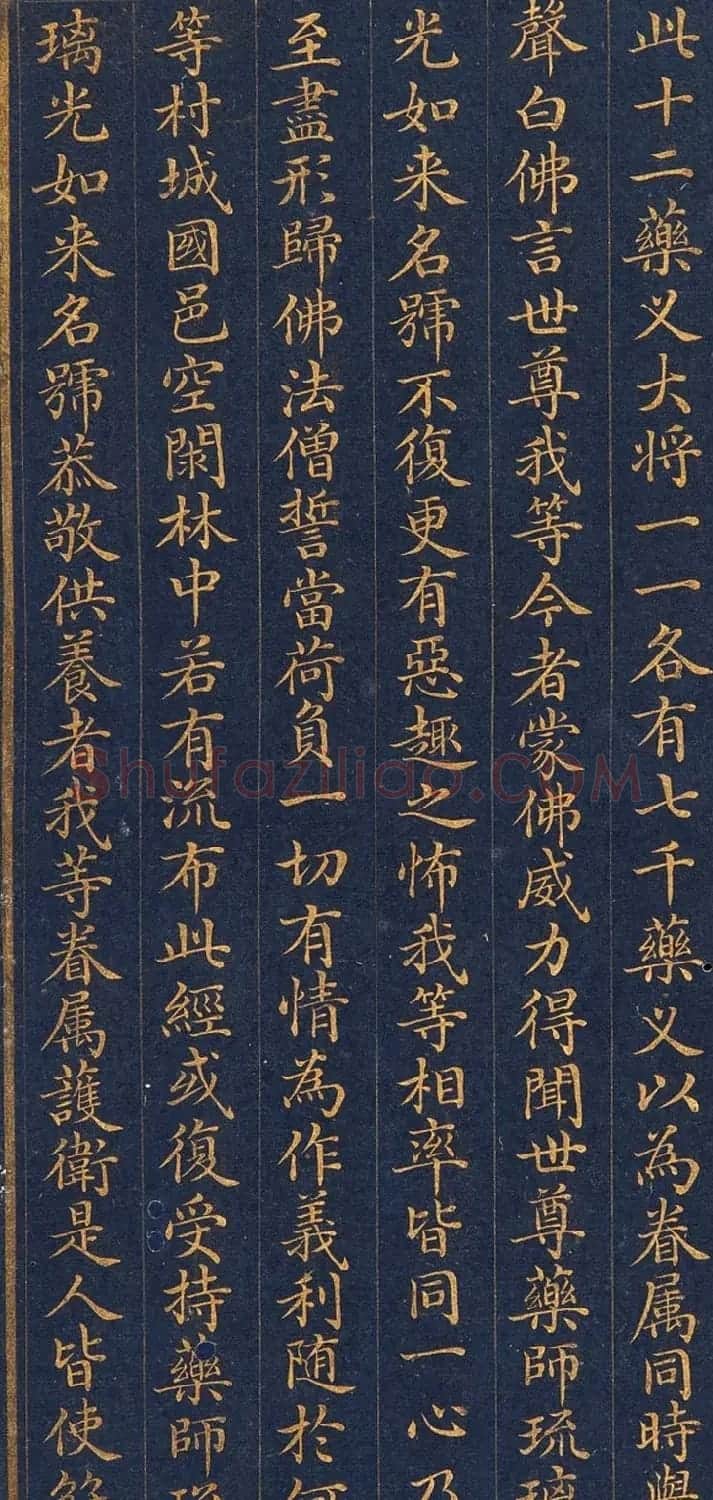 此十二藥义大将一一各有七千藥义以為眷属同時
聲白佛言世尊我等今者蒙佛威力得聞世尊藥師琉
光如来名號不復更有惡趣之怖我等相率皆同一心
至盡形歸佛法僧誓當荷負一切有情為作義利随於
等村城國邑空閑林中若有流布此經或復受持藥師
璃光如来名號恭敬供養者我等眷属護衛是人皆使
Shufaziliao.COM